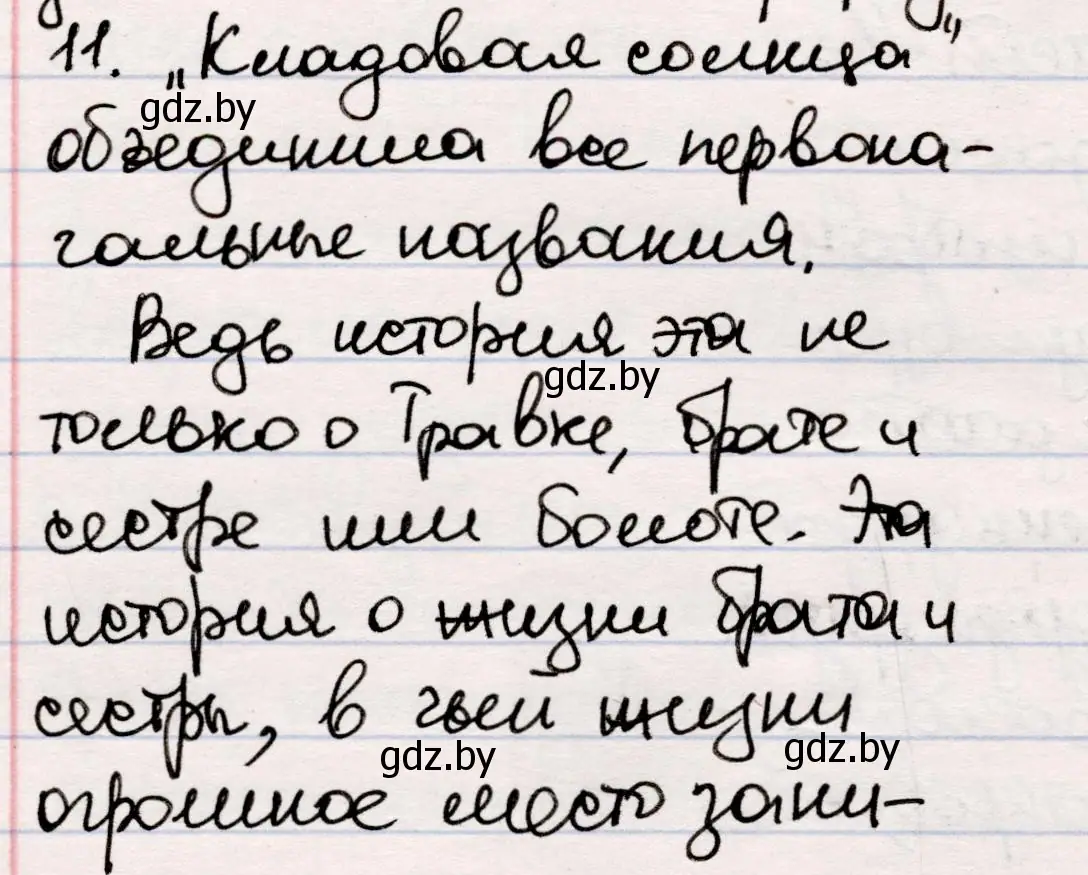 11. „Кладовая солнца“
gdz.by
объединила все первона-
чальные названия.
Ведь история эта не
gdz.by
только о Травке, брате и
сестре или болоте. Эта
история о жизни брата и
сестры, в чьей жизни
gdz.by gdz.by
огромное место зани-